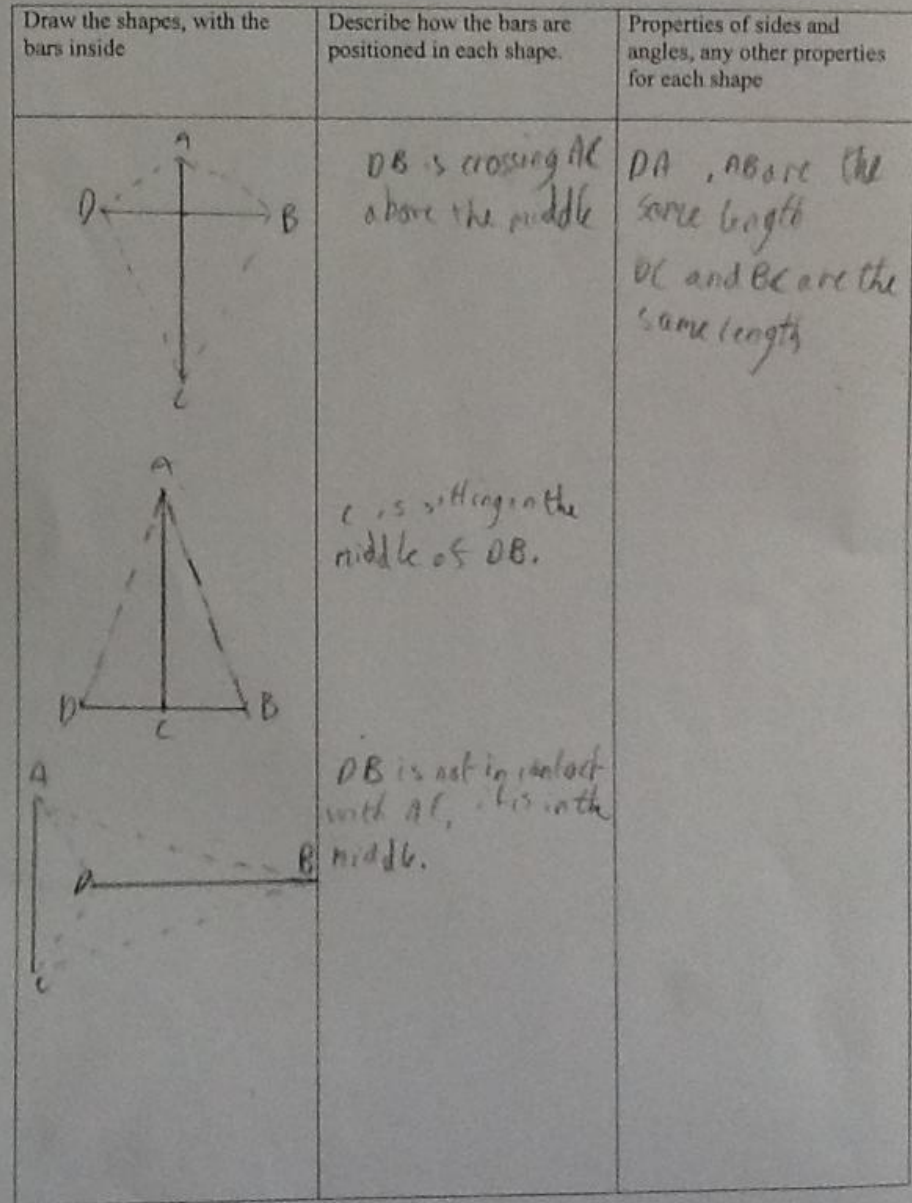 Draw the shapes, with the
bars inside
Describe how the bars are
positioned in each shape.
Properties of sides and
angles, any other properties
for each shape
A
D
B
C
DB is crossing AC
above the middle
DA , AB are the
same length
DC and BC are the
same length
A
D
B
C
C is sitting in the
middle of DB.
A
D
B
C
DB is not in contact
with AC, it is in the
middle.